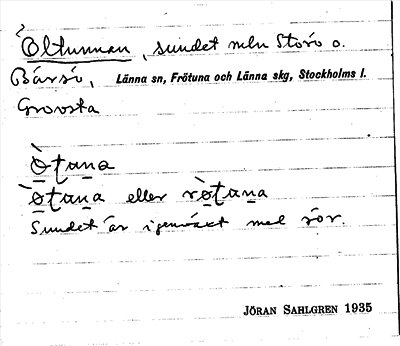 ?
Oltunnan, sundet mln Storö o.
Bärsö, Länna sn, Frötuna och Länna skg, Stockholms l.
Grovsta
ò̱ṭana
ò̱ṭana eller rò̱ṭana
Sundet är igenväxt med rör.
JÖRAN SAHLGREN 1935